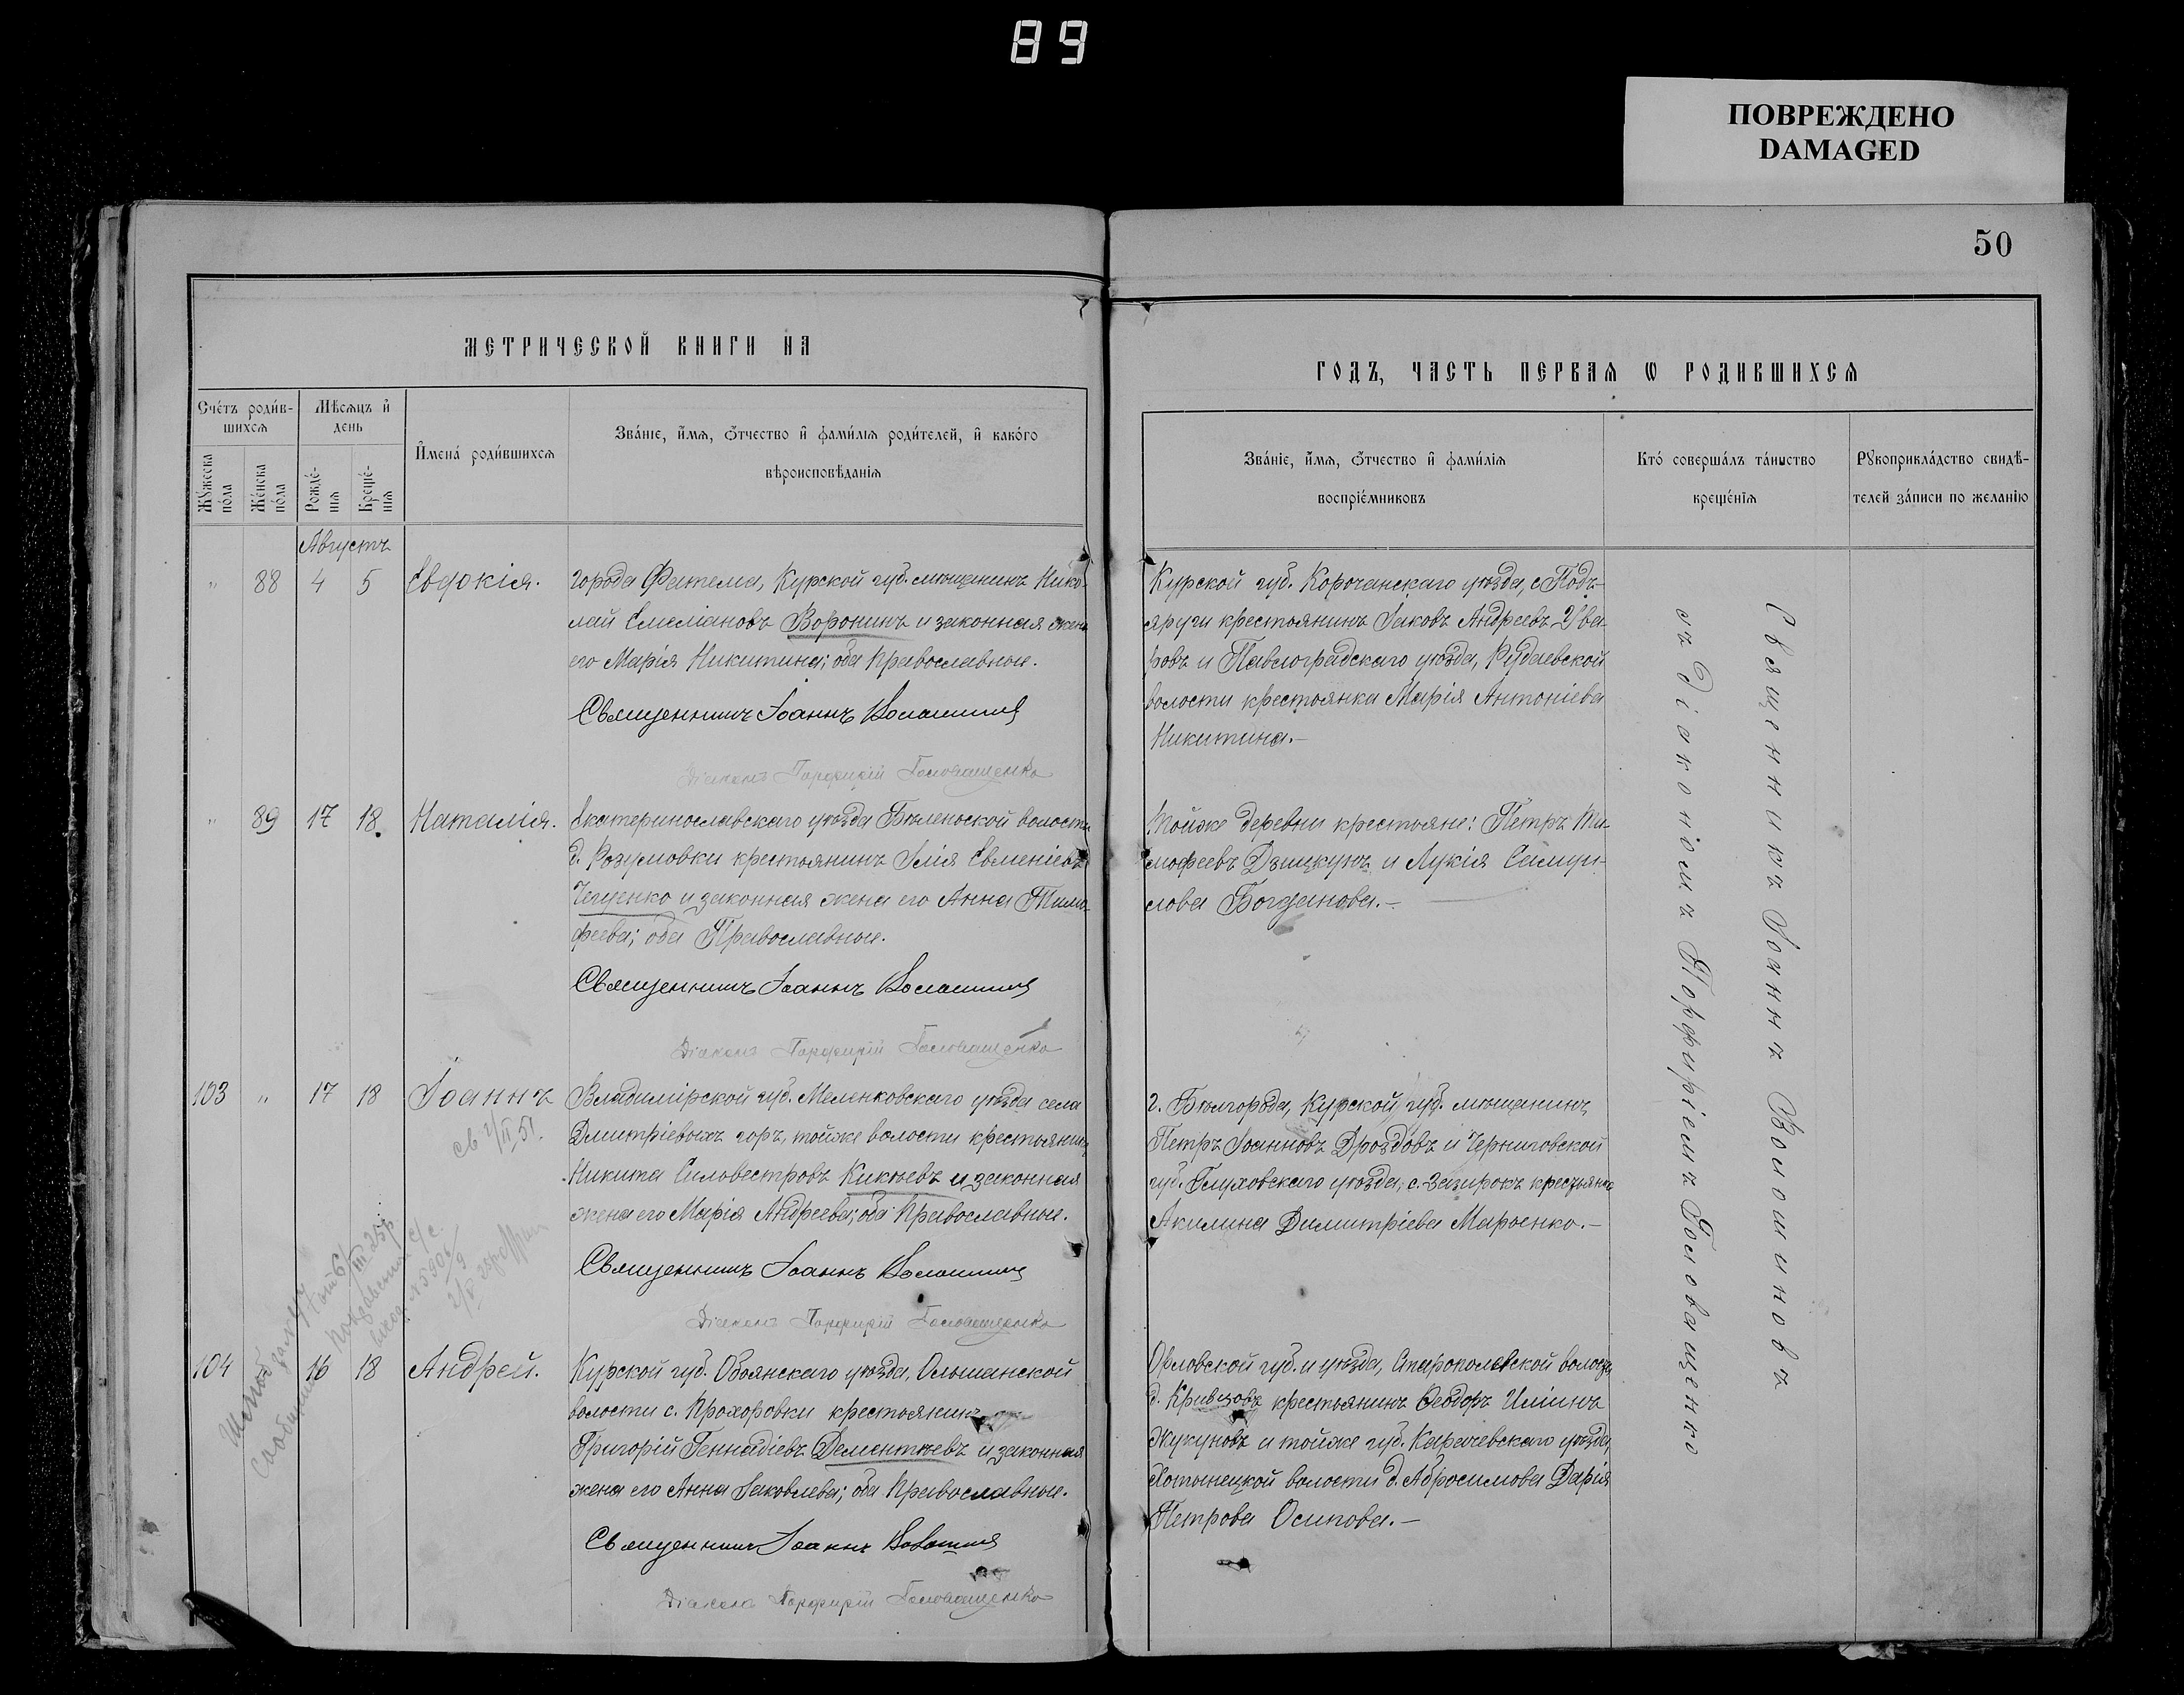 89
ПОВРЕЖДЕНО
DAMAGED
50
МЕТРИЧЕСКОЙ КНИГИ НА
ГОДЪ, ЧАСТЬ ПЕРВАЯ Ѡ РОДИВШИХСѦ
Счéтъ роди́в-
шихсѧ
Мѣсѧцъ и҆
день
Мꙋ́жеска
по́ла
Же́нска
по́ла
Рожде́-
нїѧ
Креще́-
нїѧ
И҆мена̀ роди́вшихсѧ
Зва́нїе, и҆́мѧ, ѻ҆́тчество и҆ фами́лїѧ роди́телей, и҆ како́гѡ
вѣроисповѣ́данїѧ
Зва́нїе, и҆́мѧ, ѻ҆́тчество и҆ фами́лїѧ
воспрїе́мниковъ
Кто̀ соверша́лъ та́инство
креще́нїѧ
Рꙋкоприкла́дство свидѣ́-
телей за́писи по жела́нїю
Августъ
" 88 4 5 Евдокія.
города Фатежа, Курской губ. мѣщанинъ Нико-
лай Емеліановъ Воронинъ и законная жена
его Марія Никитина; оба Православные.
Священникъ Іоаннъ Волошинъ
Діаконъ Порфирій Головащенко
Курской губ. Корочанскаго уѣзда, с. Подъ-
яруги крестьянинъ Іаковъ Андреевъ Ува-
ровъ и Павлоградскаго уѣзда,
волости крестьянка Марія Антоніева
Никитина.—
" 89 17 18 Наталія.
Екатеринославскаго уѣзда Бѣленьской волости
д. Розумовки крестьянинъ Илія Евменіевъ
и законная жена его Анна Тимо-
феева; оба Православные.
Священникъ Іоаннъ Волошинъ
Діаконъ Порфирій Головащенко
Тойже деревни крестьяне: Петръ Ти-
мофеевъ и Лукія Самуи-
лова Богданова.—
103 " 17 18 Іоаннъ
Владимірской губ. Меленковскаго уѣзда села
Дмитріевыхъ горъ, тойже волости крестьянинъ
Никита Силовестровъ Кикѣевъ и законная
жена его Марія Андреева; оба Православные.
Священникъ Іоаннъ Волошинъ
Діаконъ Порфирій Головащенко
г. Бѣлгорода, Курской губ. мѣщанинъ
Петръ Іоанновъ Дроздовъ и Черниговской
губ. Глуховскаго уѣзда, с. крестьянка
Акилина Димитріева Мароенко.—
104 16 18 Андрей.
Курской губ. Обоянскаго уѣзда, Ольшанской
волости с. Прохоровки крестьянинъ
Григорій Геннадіевъ Дементьевъ и законная
жена его Анна Іаковлева; оба Православные.
Священникъ Іоаннъ Волошинъ
Діаконъ Порфирій Головащенко
Орловской губ. и уѣзда, волости
д. Кривцова крестьянинъ Ѳеодоръ Иліинъ
Жукуновъ и тойже губ. Карачевскаго уѣзда,
Хотынецкой волости д. Абросимова Дарія
Петрова Осипова.—
Священникъ Іоаннъ Волошиновъ
съ Діакономъ Порфиріемъ Головащенко